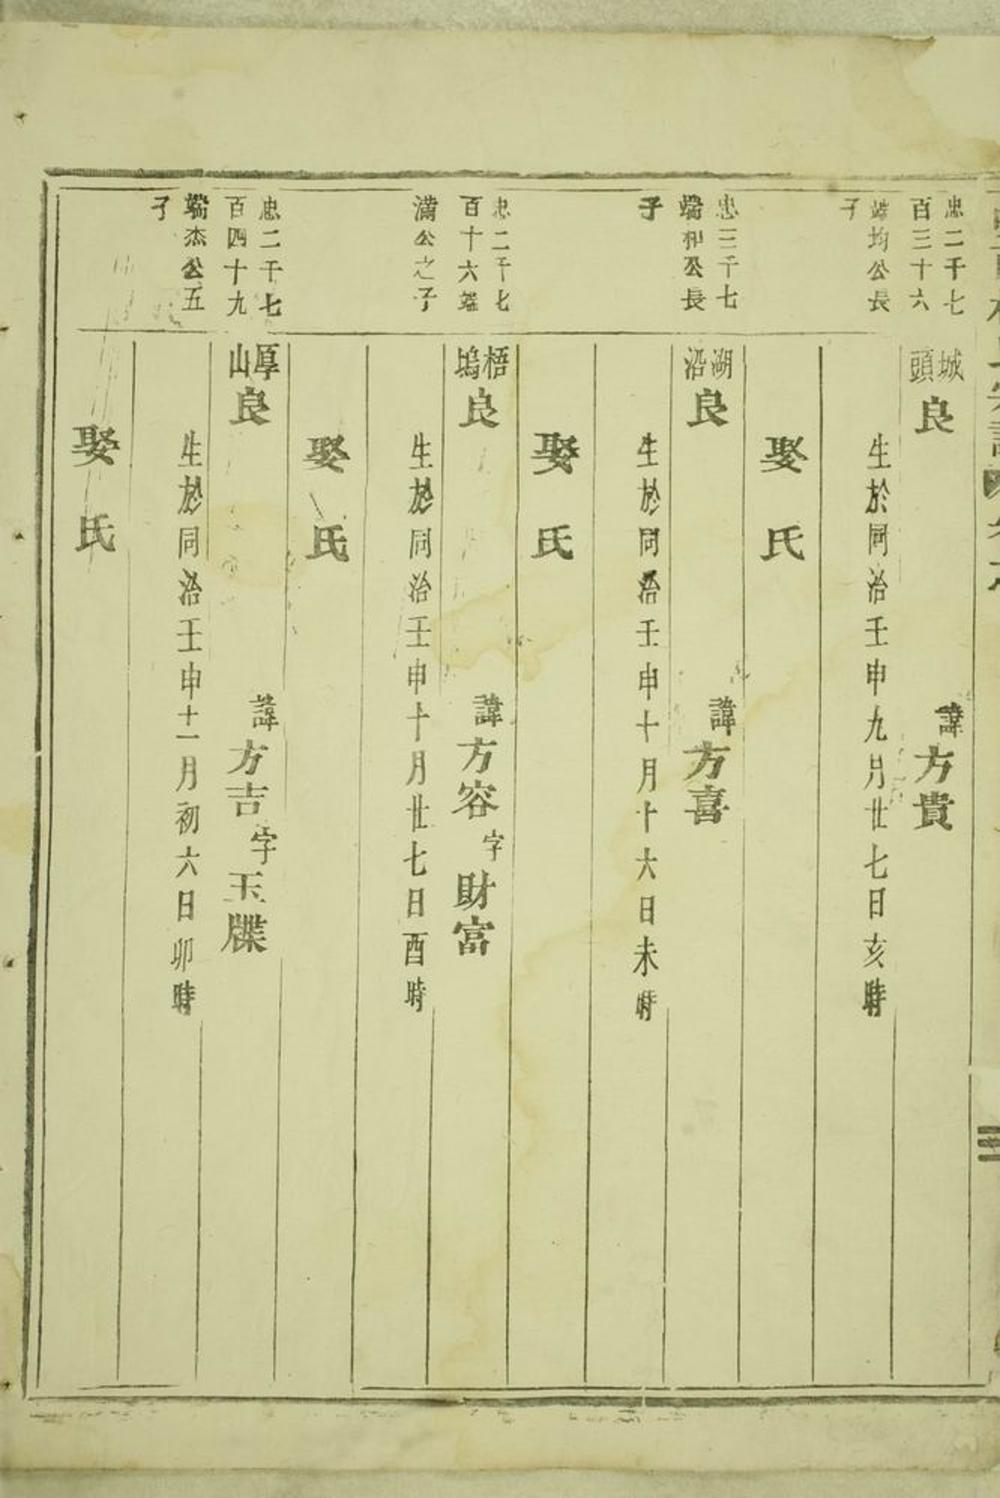 忠二千七
百三十六
端均公長
子
城頭
良
諱方貴
生於同治壬申九月廿七日亥時
娶氏
忠二千七
端和公長
子
湖沿
良
諱方喜
生於同治壬申十月十六日未時
娶氏
忠二千七
百十六端
滿公之子
梧塢
良
諱方容字財富
生於同治壬申十月廿七日酉時
娶氏
忠二千七
百四十九
端杰公五
子
厚山
良
諱方吉字玉牒
生於同治壬申十一月初六日卯時
娶氏